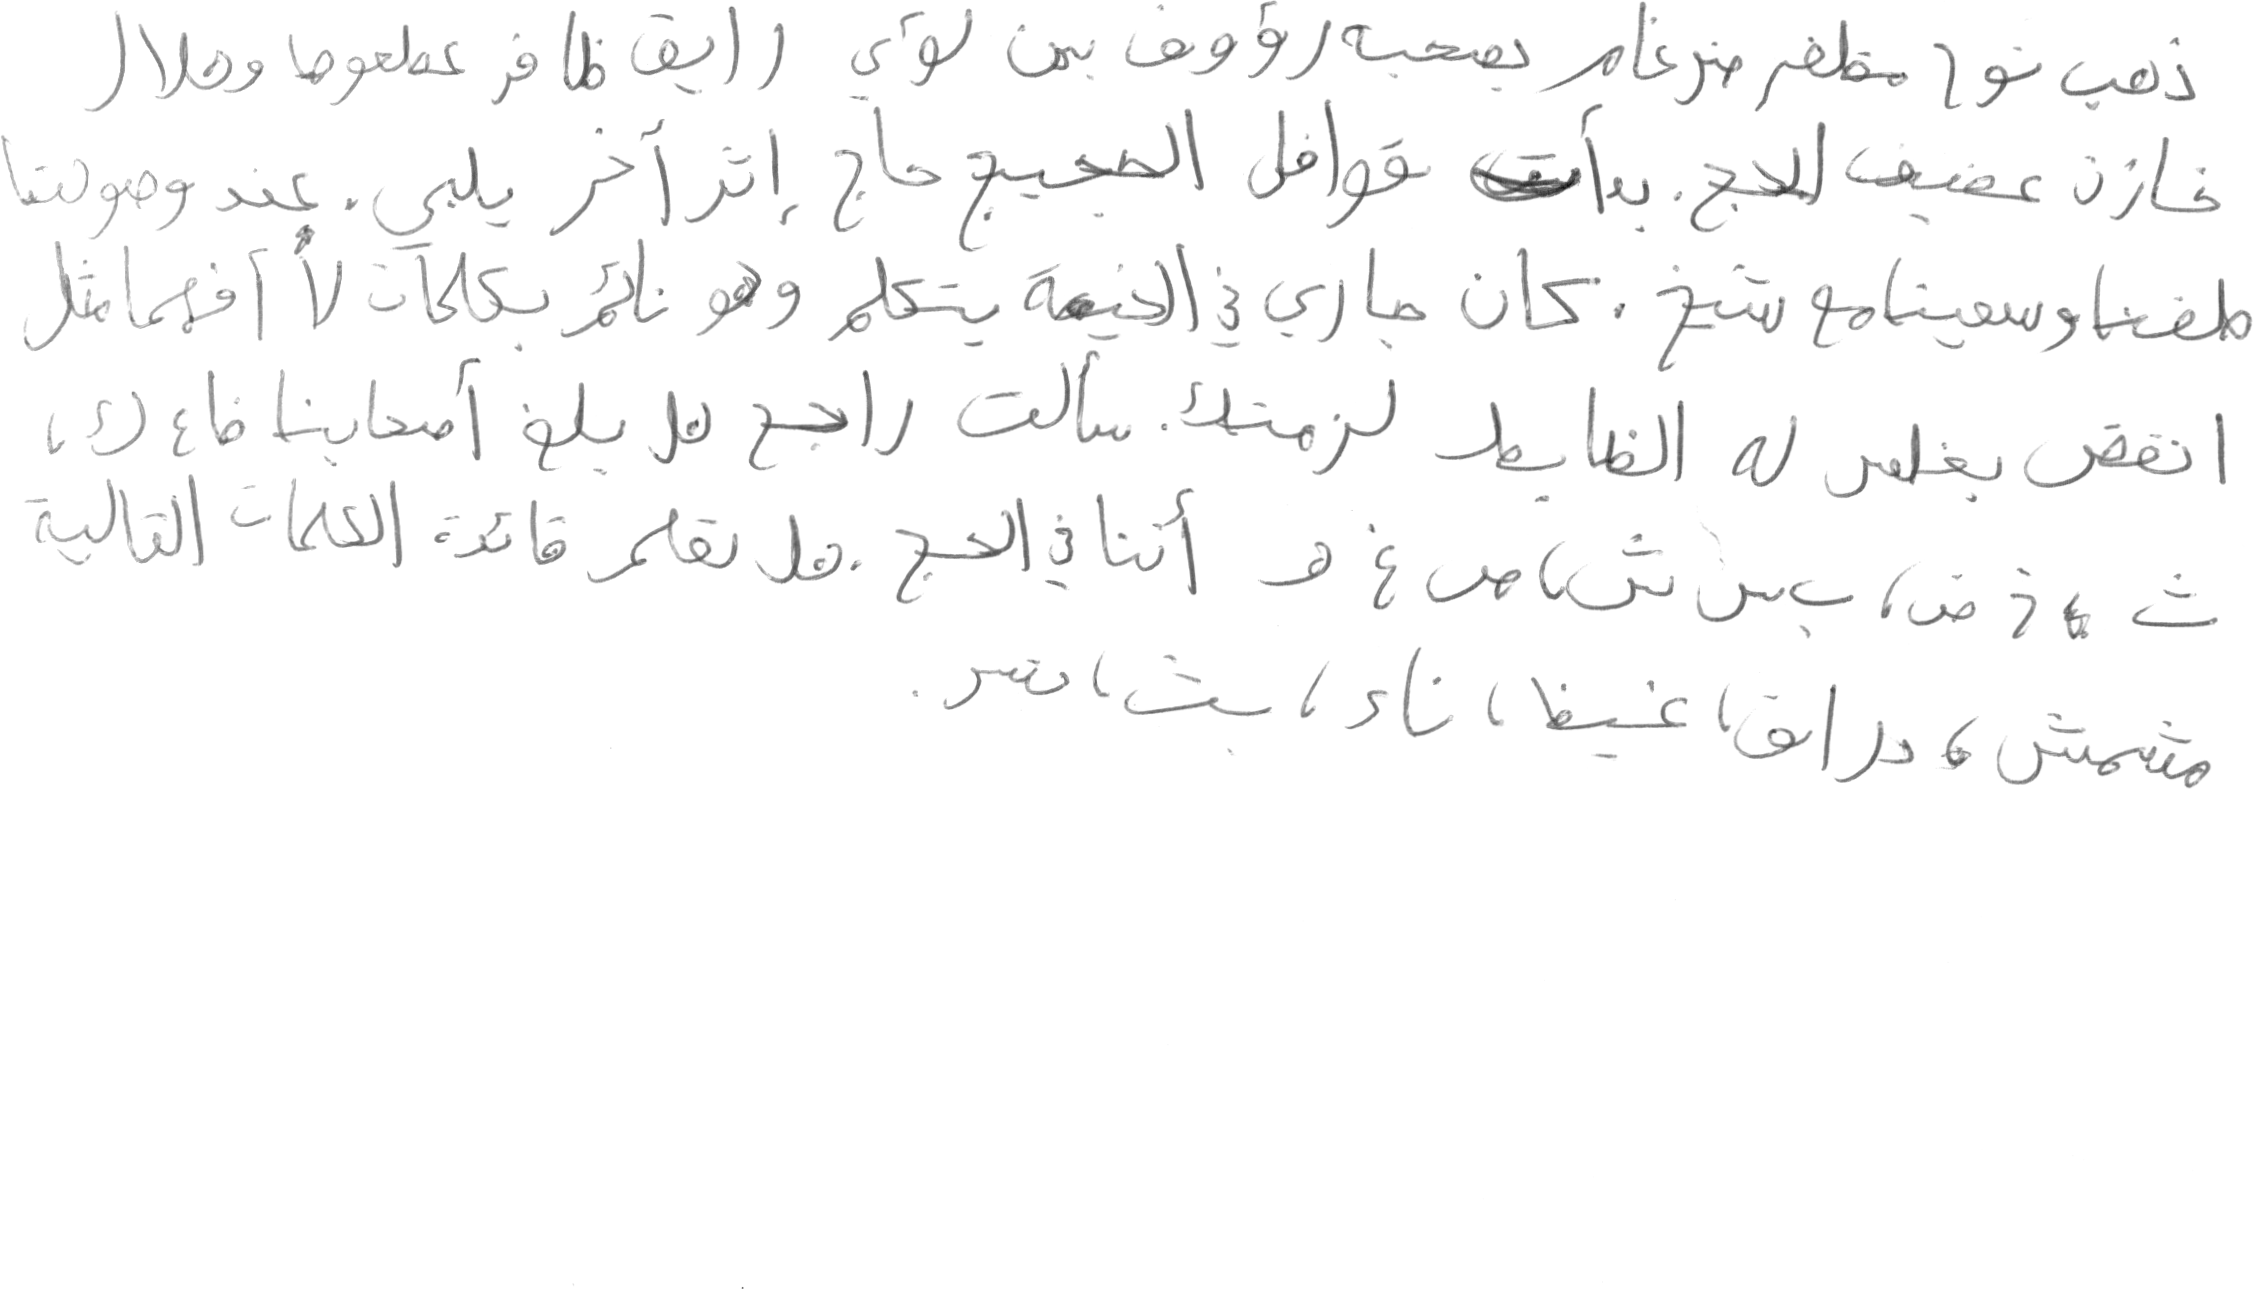 ذهب نوح مظفر ضرغام بصحبه رؤوف بن لؤي رايق ظافر عطعوط وهلال
خازن عضيف للحج. بدأت قوافل الحجيج حاج إثر أخر يلبي. عند وصولنا
طفنا وسعينا مع شيخ. كان جاري في الخيمة يتكلم وهو نائم بكلمات لا أفهما مثل
انقض بغلس له الظابط لزمتك. سألت راجح هل بلغ أصحابنا
ث خ ض، ب س ش، ص غ هـ أننا في الحج. هل تعلم فائدة الكلمات التالية
مشمش، دراق، غيظ، ناء، بث،